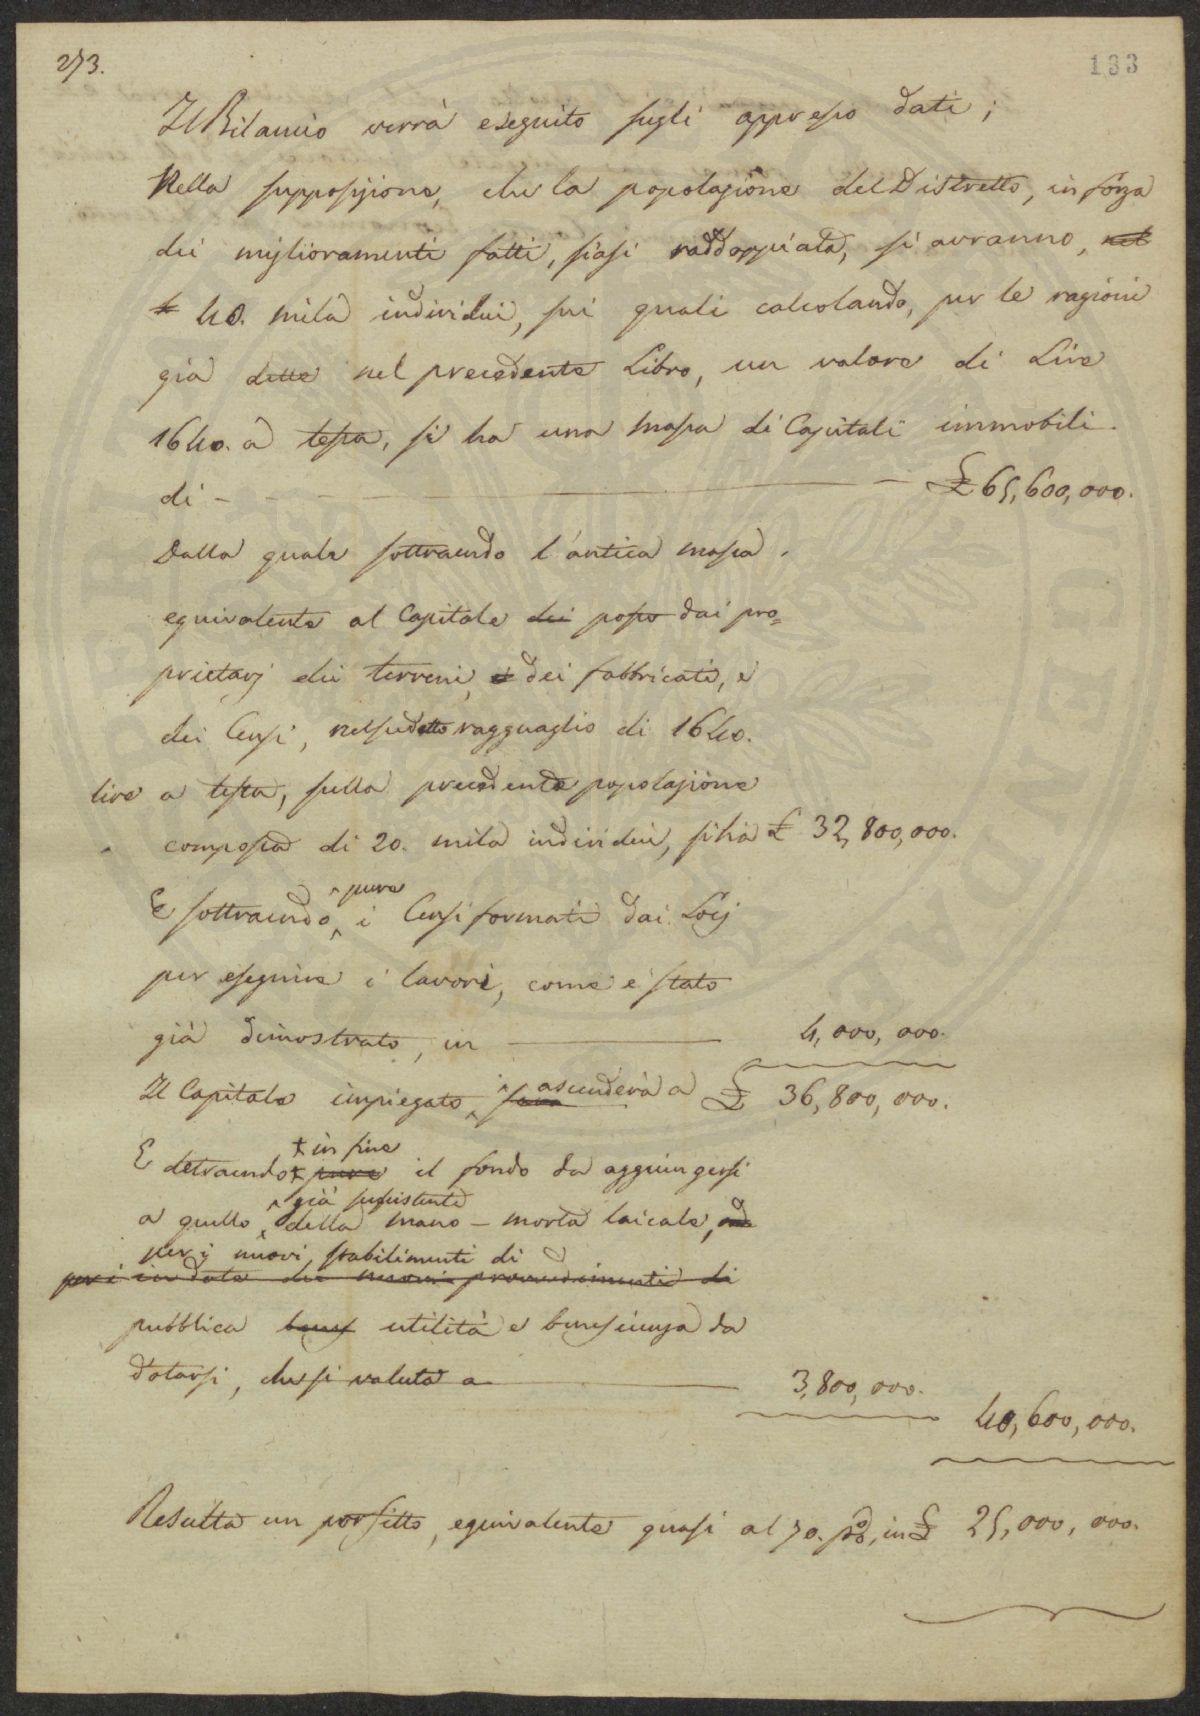 273.
133
Il Bilancio verrà eseguito sugli appresso dati;
Nella supposizione, che la popolazione del Distretto, in forza
dei miglioramenti fatti, siasi raddoppiata, si avranno,
40. mila individui, sui quali calcolando, per le ragioni
già dette nel precedente Libro, un valore di Lire
1640. a testa, si ha una massa di Capitali immobili
di - £ 65,600,000.
Dalla quale sottraendo l'antica massa
equivalente al Capitale dei posso dai pro=
prietarj dei terreni, e dei fabbricati, e
dei Censi, nel sudetto ragguaglio di 1640.
lire a testa, sulla precedente popolazione
composta di 20. mila individui, si ha £ 32,800,000.
E sottraendo pure i Censi formati dai Socj
per eseguire i lavori, come è stato
già dimostrato, in 4,000,000.
Il Capitale impiegato ascenderà a £ 36,800,000.
E detraendo in fine il fondo da aggiungersi
a quello già sussistente della mano-morta laicale,
per i nuovi stabilimenti di
per i in dote dei nuovi provvedimenti di
pubblica benef utilità e beneficenza da
dotarsi, che si valuta a 3,800,000.
40,600,000.
Resulta un profitto, equivalente quasi al 70. p%, in £ 25,000,000.